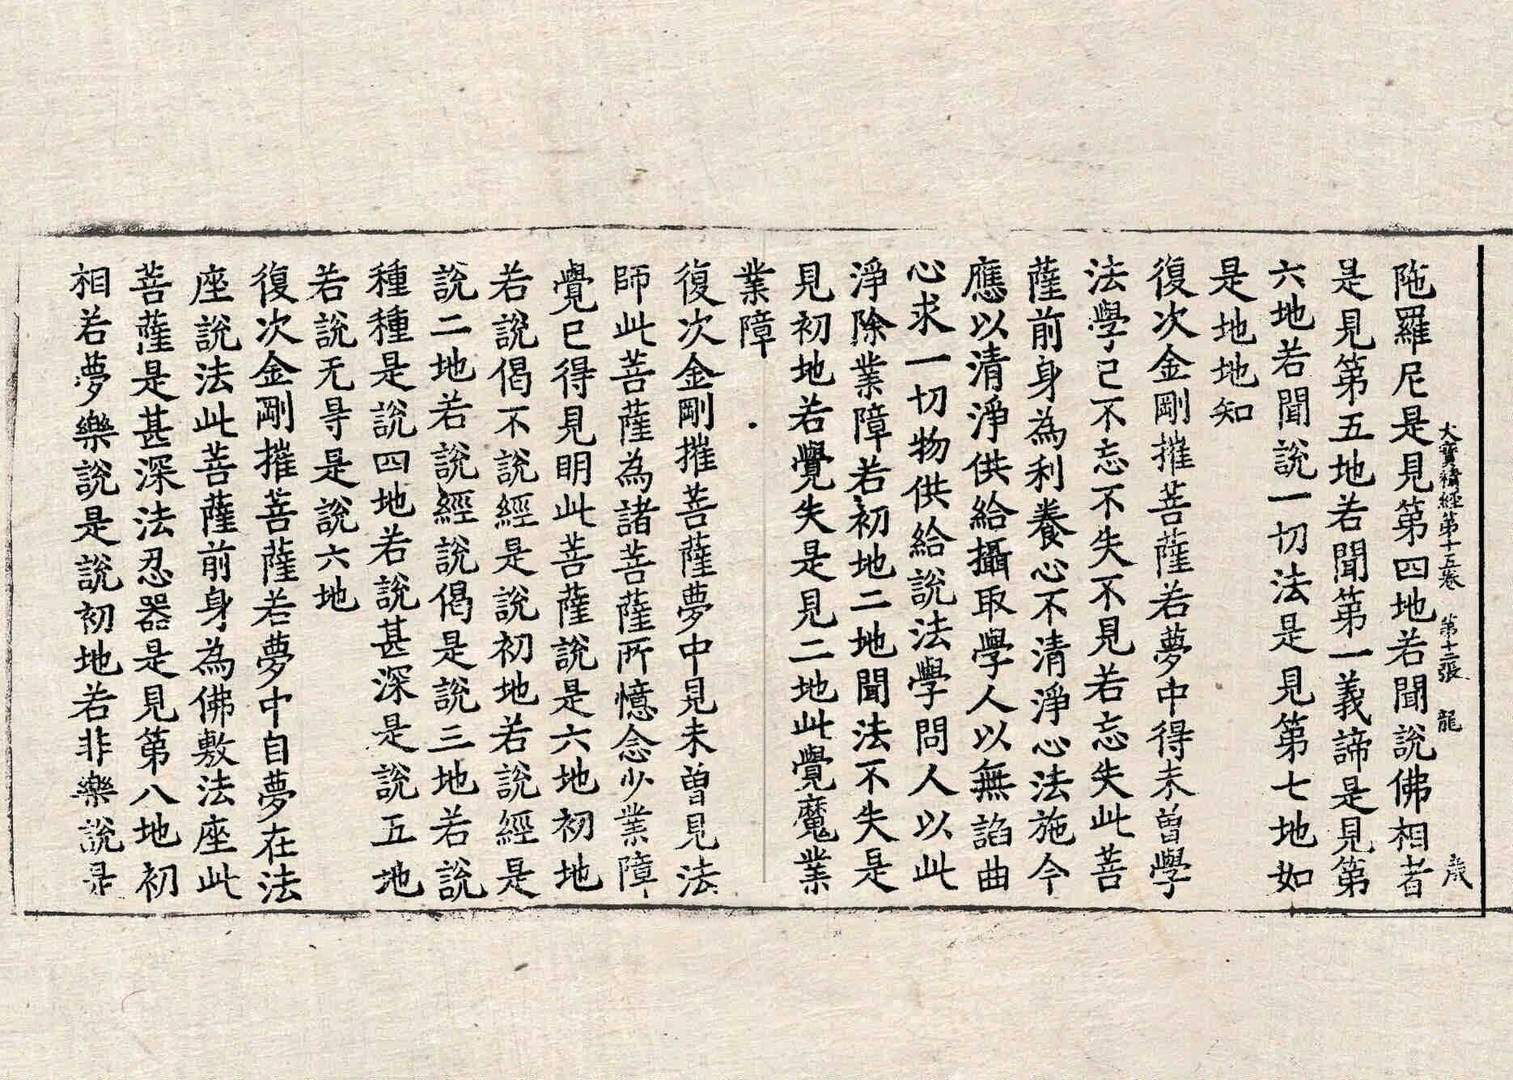 大寶積經第十五卷　第十二張　龍
陁羅尼是見第四地若聞說佛相者
是見第五地若聞第一義諦是見第
六地若聞說一切法是見第七地如
是地地知
復次金剛摧菩薩若夢中得未曽學
法學已不忘不失不見若忘失此菩
薩前身為利養心不清淨心法施今
應以清淨供給攝取學人以無諂曲
心求一切物供給說法學問人以此
淨除業障若初地二地聞法不失是
見初地若覺失是見二地此覺魔業
業障
復次金剛摧菩薩夢中見未曽見法
師此菩薩為諸菩薩所憶念少業障
覺已得見明此菩薩說是六地初地
若說偈不說經是說初地若說經是
說二地若說經說偈是說三地若說
種種是說四地若說甚深是說五地
若說无㝵是說六地
復次金剛摧菩薩若夢中自夢在法
座說法此菩薩前身為佛敷法座此
菩薩是甚深法忍器是見第八地初
相若夢樂說是說初地若非樂說是